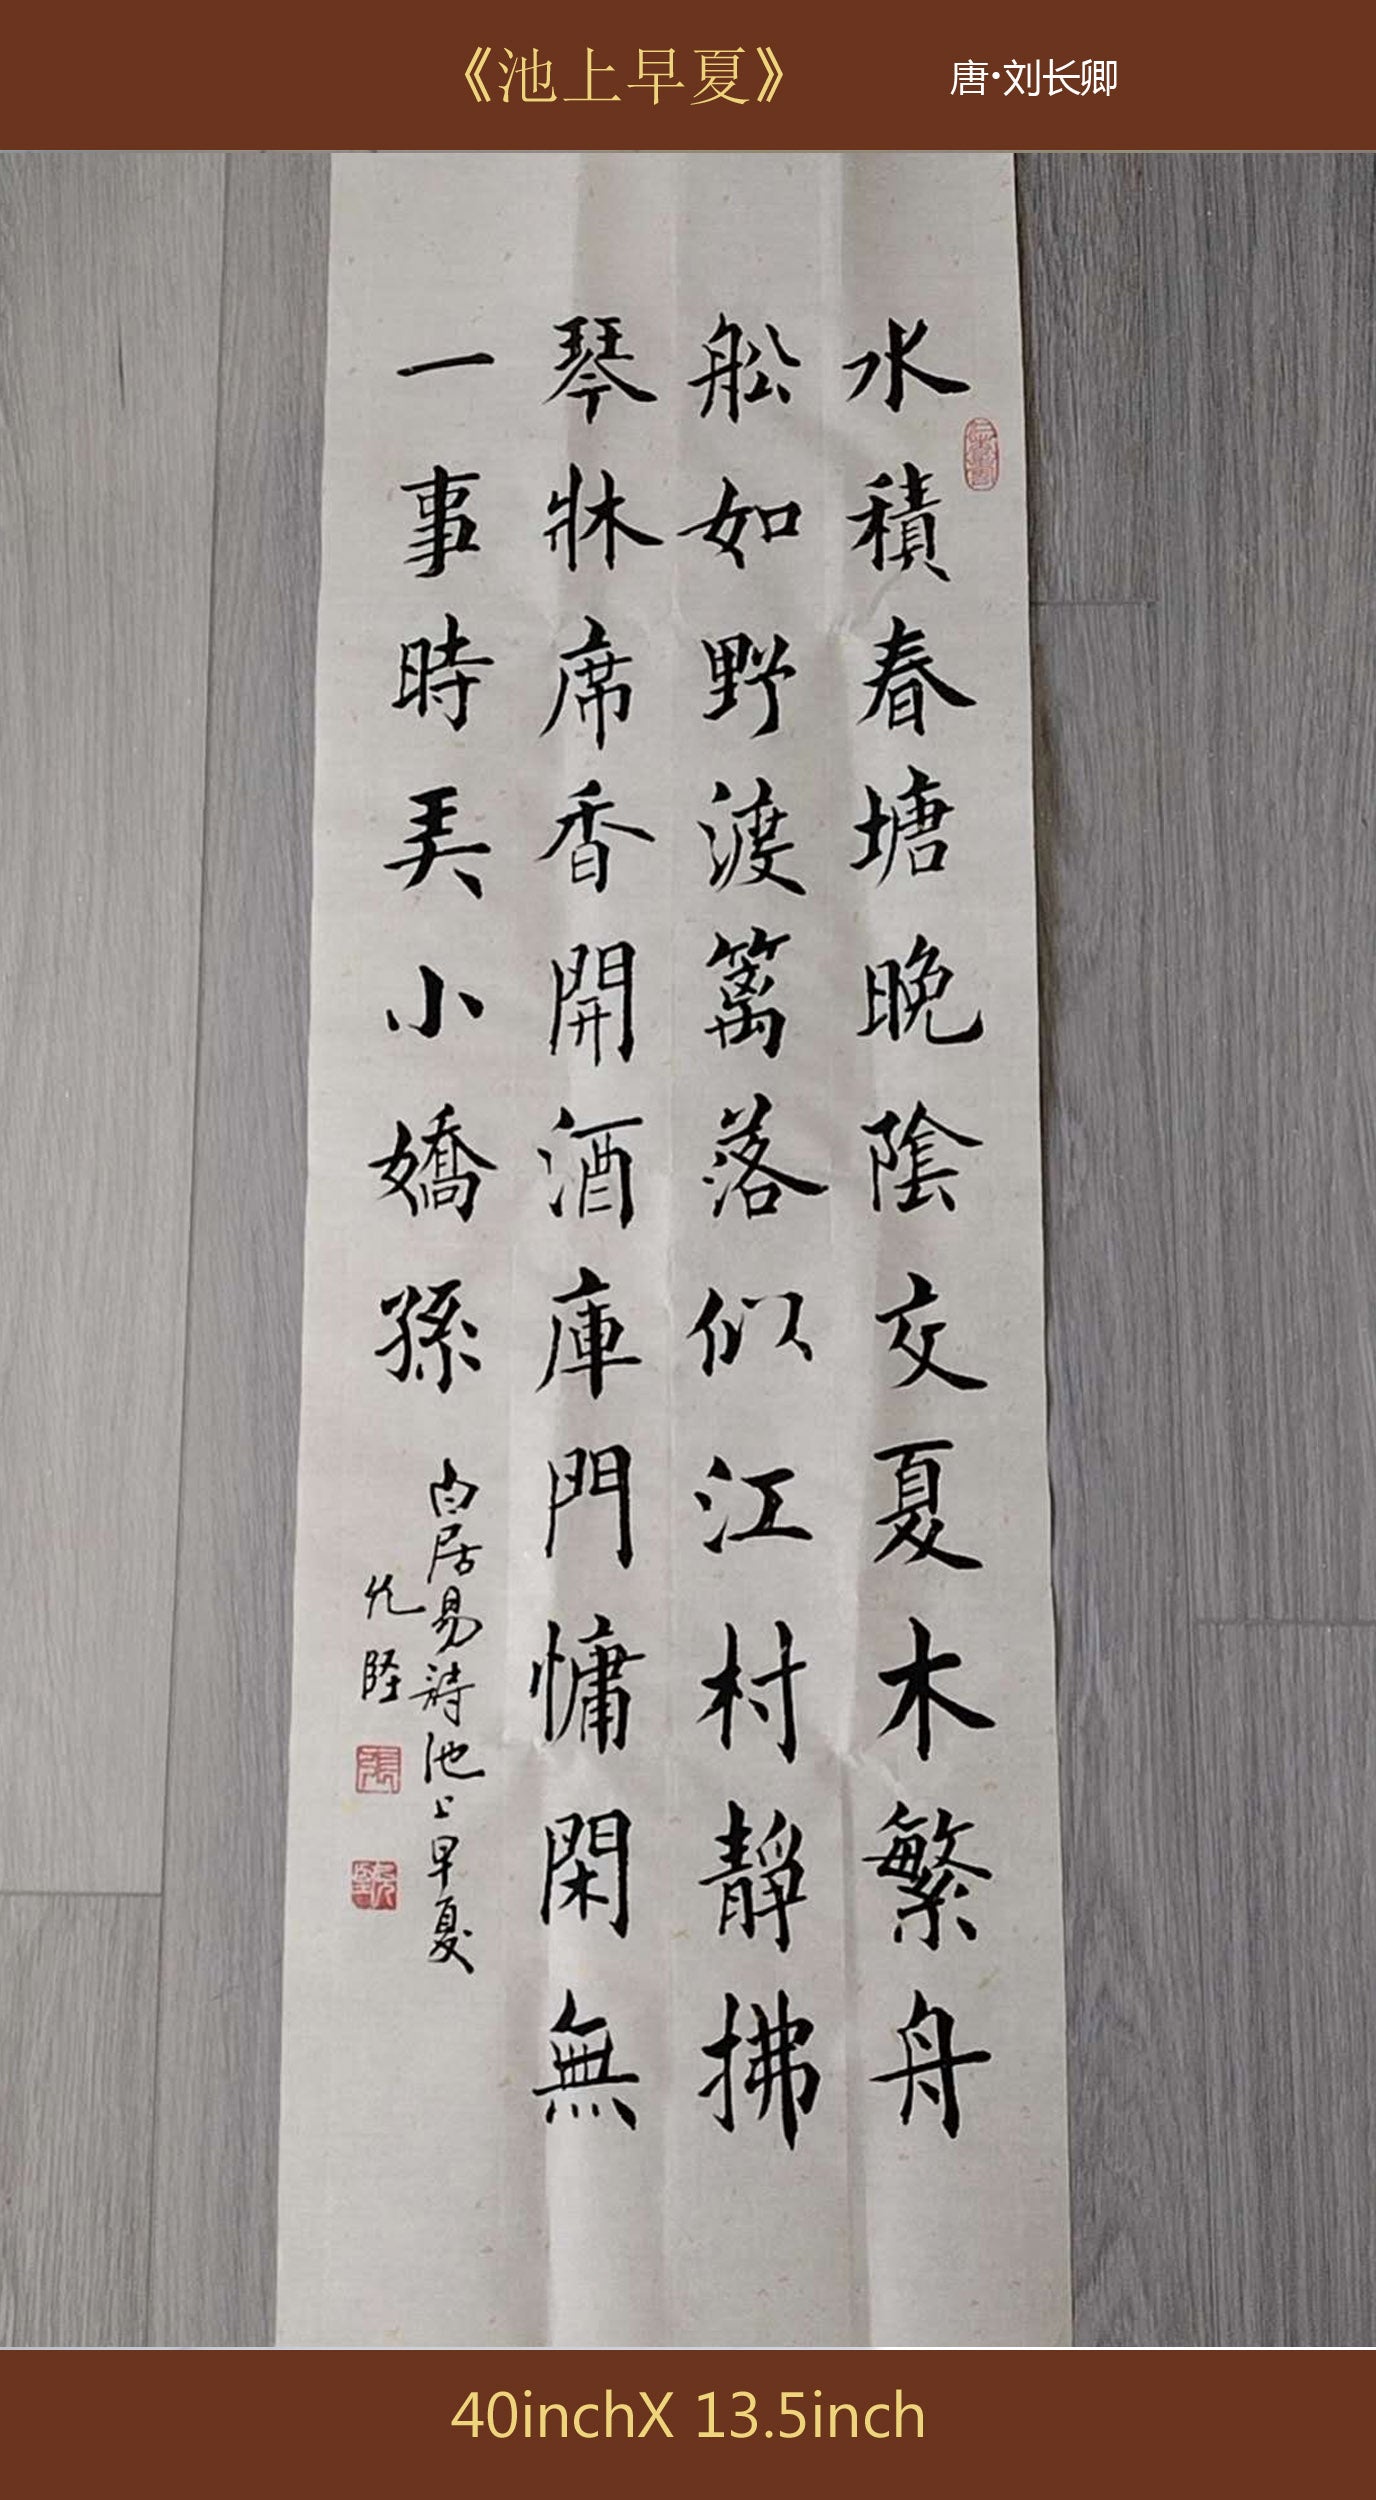 《池上早夏》 唐·刘长卿
水積春塘晚陰交夏木繁舟
舩如野渡篱落似江村静拂
琴牀席香開酒庫門慵閑無
一事時弄小嬌孫
白居易詩池上早夏
40inchX 13.5inch